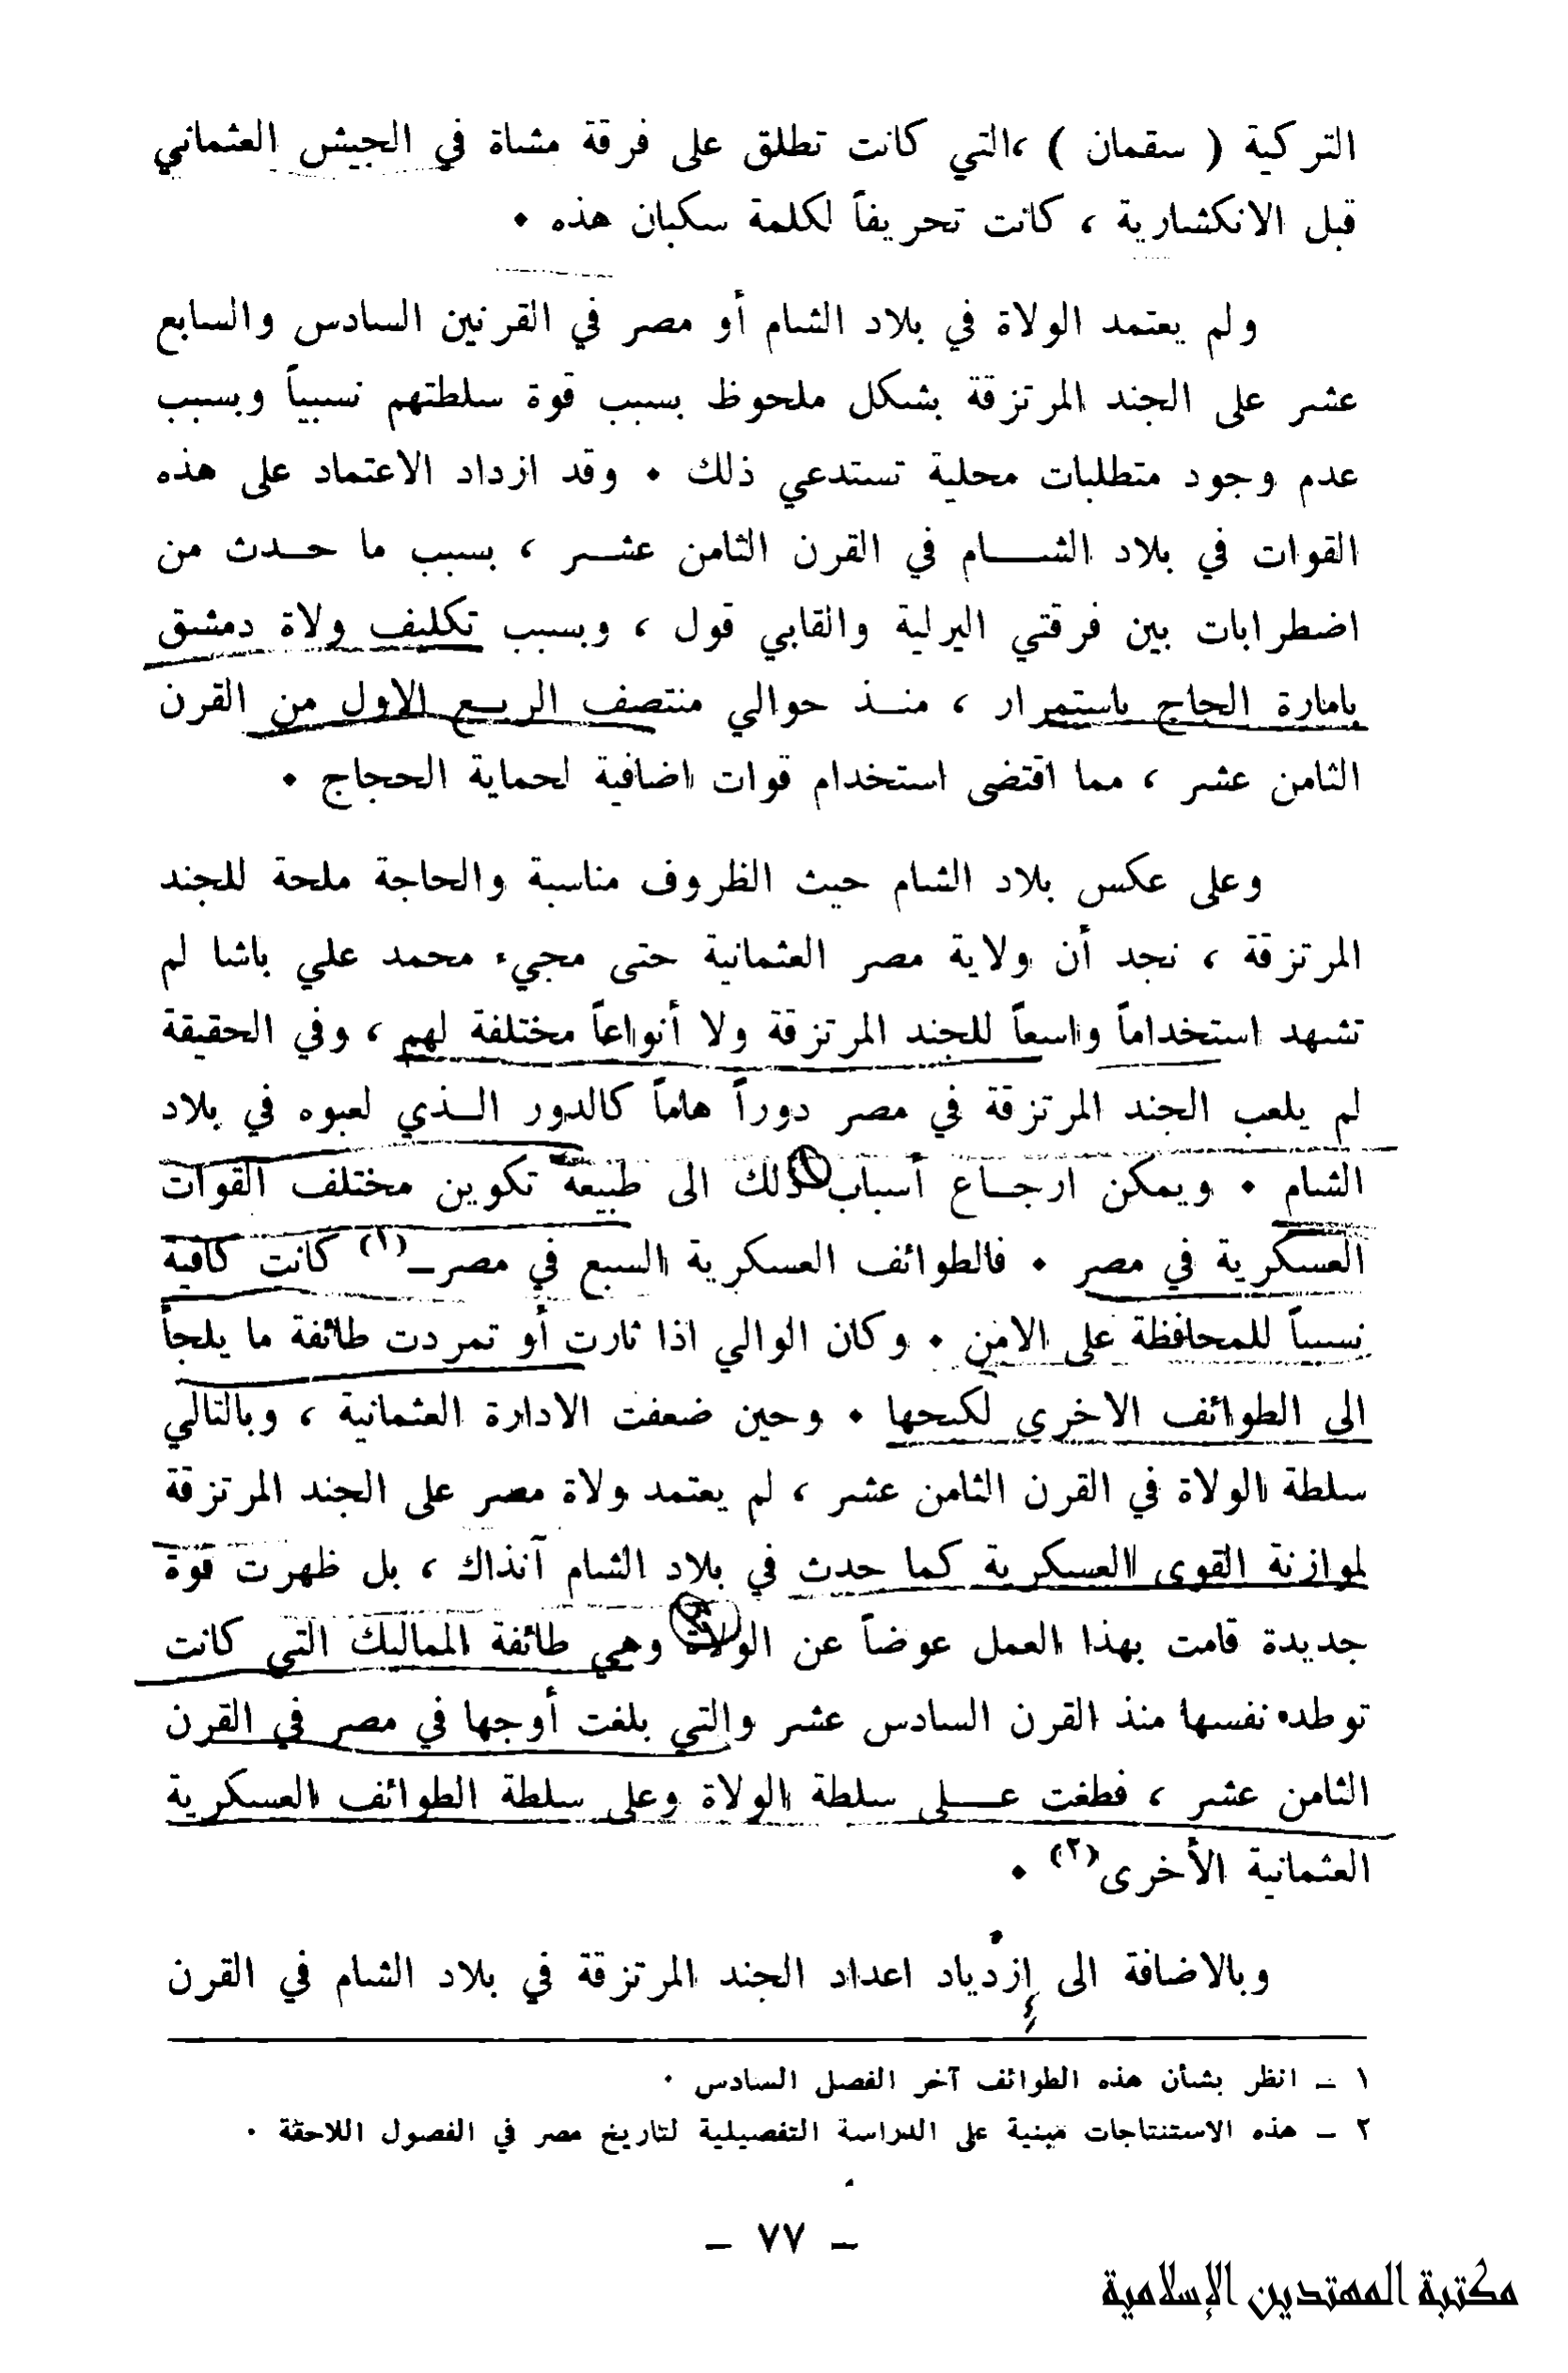 التركية ( سقمان ) ،التي كانت تطلق على فرقة مشاة في الجيش العثماني
قبل الانكشارية ، كانت تحريفاً لكلمة سكبان هذه ٠
ولم يعتمد الولاة في بلاد الشام أو مصر في القرنين السادس والسابع
عشر على الجند المرتزقة بشكل ملحوظ بسبب قوة سلطتهم نسبياً وبسبب
عدم وجود متطلبات محلية تستدعي ذلك ٠ وقد ازداد الاعتماد على هذه
القوات في بلاد الشــــام في القرن الثامن عشــر ، بسبب ما حــدث من
اضطرابات بين فرقتي اليرلية والقابي قول ، وبسبب تكليف ولاة دمشق
بامارة الحاج باستمرار ، منــذ حوالي منتصف الربــع الاول من القرن
الثامن عشر ، مما اقتضى استخدام قوات اضافية لحماية الحجاج ٠
وعلى عكس بلاد الشام حيث الظروف مناسبة والحاجة ملحة للجند
المرتزقة ، نجد أن ولاية مصر العثمانية حتى مجيء محمد علي باشا لم
تشهد استخداماً واسعاً للجند المرتزقة ولا أنواعاً مختلفة لهم ، وفي الحقيقة
لم يلعب الجند المرتزقة في مصر دوراً هاماً كالدور الــذي لعبوه في بلاد
الشام ٠ ويمكن ارجــاع أسباب ذلك الى طبيعة تكوين مختلف القوات
العسكرية في مصر ٠ فالطوائف العسكرية السبع في مصر_(١) كانت كافية
نسبياً للمحافظة على الامن ٠ وكان الوالي اذا ثارت أو تمردت طائفة ما يلجأ
الى الطوائف الاخرى لكبحها ٠ وحين ضعفت الادارة العثمانية ، وبالتالي
سلطة الولاة في القرن الثامن عشر ، لم يعتمد ولاة مصر على الجند المرتزقة
لموازنة القوى العسكرية كما حدث في بلاد الشام آنذاك ، بل ظهرت قوة
جديدة قامت بهذا العمل عوضاً عن الولاة وهي طائفة المماليك التي كانت
توطد نفسها منذ القرن السادس عشر والتي بلغت أوجها في مصر في القرن
الثامن عشر ، فطغت عــــلى سلطة الولاة وعلى سلطة الطوائف العسكرية
العثمانية الأخرى(٢) ٠
وبالاضافة الى إزدياد اعداد الجند المرتزقة في بلاد الشام في القرن
١ ــ انظر بشأن هذه الطوائف آخر الفصل السادس ٠
٢ ــ هذه الاستنتاجات مبنية على الدراسة التفصيلية لتاريخ مصر في الفصول اللاحقة ٠
ــ ٧٧ ــ
مكتبة المهتدين الإسلامية